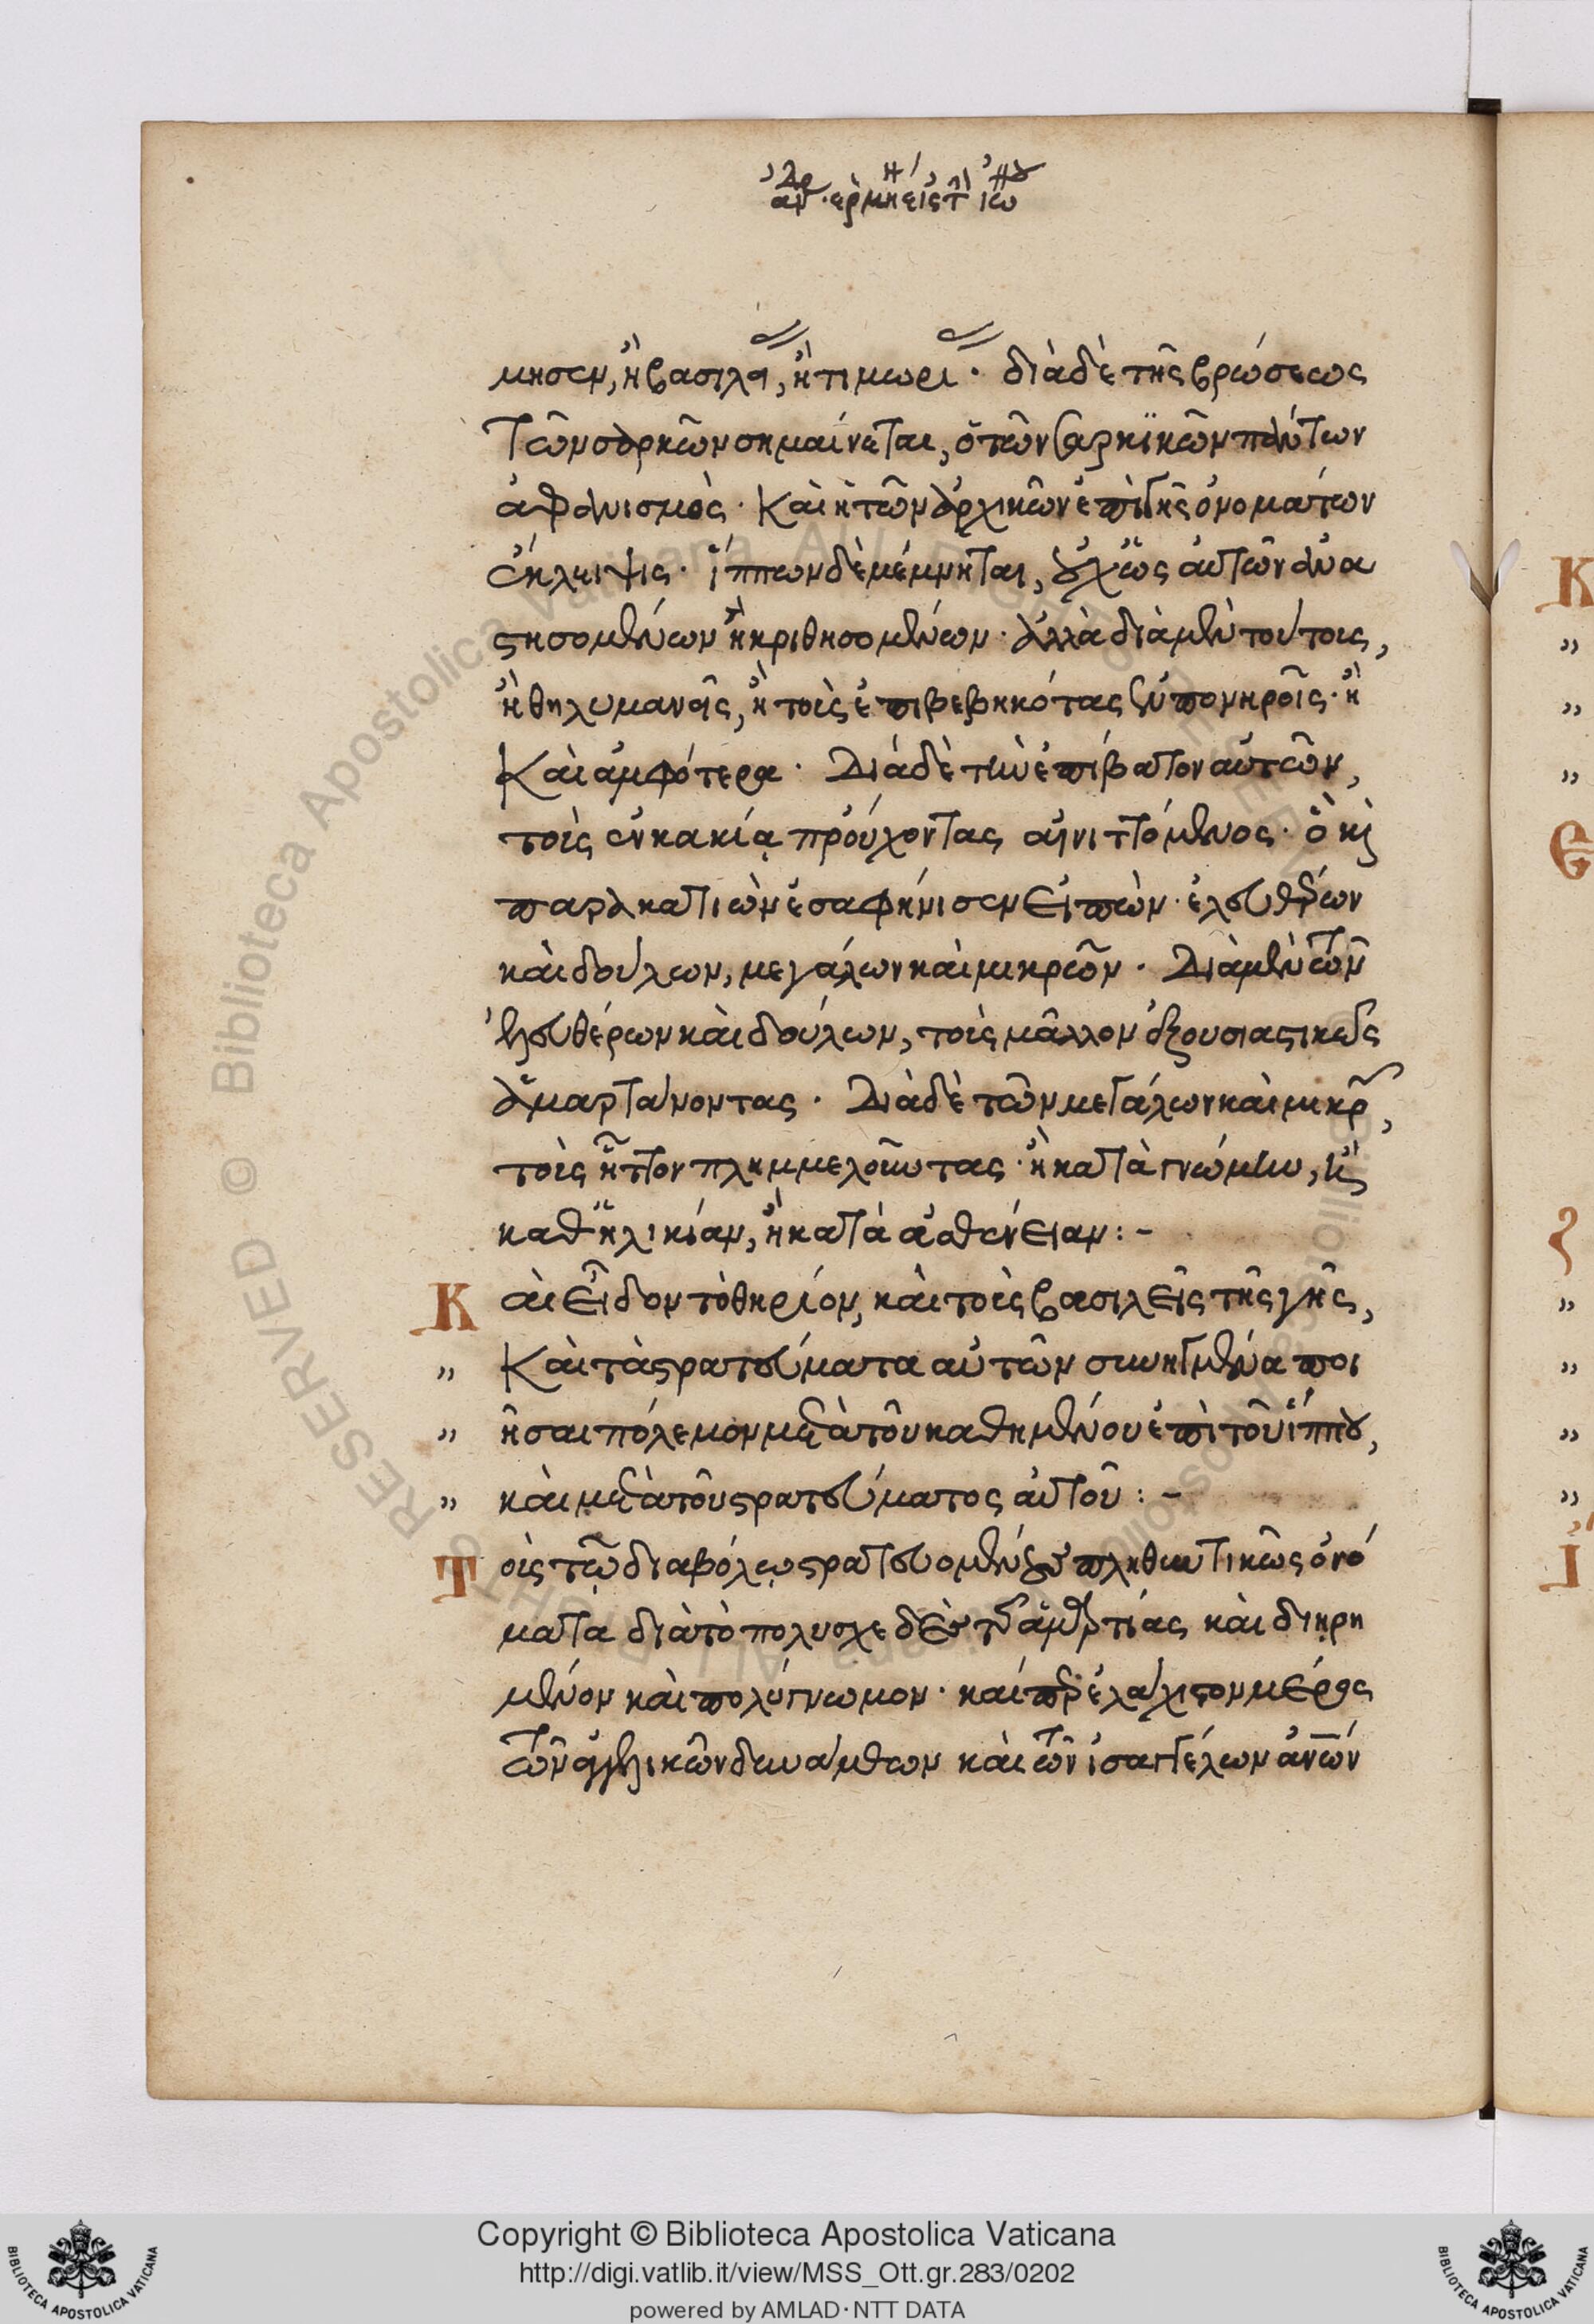 μησεν, ἢ βασιλεί, ἢ τιμωρι· διὰ δὲ τῆς βρώσεως
τῶν σαρκῶν σημαίνεται, ὁ τῶν σαρκϊκῶν πάντων
ἀφανισμὸς· καὶ ἡ τῶν ἀρχικῶν ἐπὶ γῆς ὀνομάτων
ἔκλειψις· ἵππων δὲ μέμνηται, οὐχ ὡς αὐτῶν ἀνα
στησομένων ἢ κριθησομένων· ἀλλὰ διὰ μὲν τούτοις,
ἢ θηλυμανεῖς, ἢ τοὺς ἐπιβεβηκότας ἐν πονηροῖς· ἢ
καὶ ἀμφότερα· Διὰ δὲ τὴν ἐπίβατον αὐτῶν,
τοὺς ἐν κακίᾳ προύχοντας αἰνιττόμενος· ὃ καὶ
παρακατιὼν ἐσαφήνισεν εἰπὼν· ἐλευθέρων
καὶ δούλων, μεγάλων καὶ μικρῶν· Διὰ μὲν τῶν
ἐλευθέρων καὶ δούλων, τοὺς μᾶλλον ἐξουσιαστικῶς
ἁμαρτάνοντας· Διὰ δὲ τῶν μεγάλων καὶ μικρῶν,
τοὺς ἧττον πλημμελοῦντας· ἢ κατὰ γνώμην, ἢ
καθ ἡλικίαν, ἢ κατὰ ἀσθένειαν:-
Καὶ εἶδον τὸ θηρίον, καὶ τοὺς βασιλεῖς τῆς γῆς,
" καὶ τὰ στρατεύματα αὐτῶν συνηγμένα ποι
" ῆσαι πόλεμον μετὰ τοῦ καθημένου ἐπὶ τοῦ ἵππου,
" καὶ μετὰ τοῦ στρατεύματος αὐτοῦ:-
Τοὺς τῷ διαβόλῳ στρατευομένους πληθυντικῶς ὀνό
ματα διὰ τὸ πολυσχεδὲς τῆς ἁμαρτίας καὶ διῃρη
μένον καὶ πολύγνωμον· καίπερ ἐλάχιστον μέρος
τῶν ἀγγελικῶν δυνάμεων καὶ τῶν ἰσαγγέλων ἀνῶν
Copyright © Biblioteca Apostolica Vaticana
http://digi.vatlib.it/view/MSS_Ott.gr.283/0202
powered by AMLAD · NTT DATA